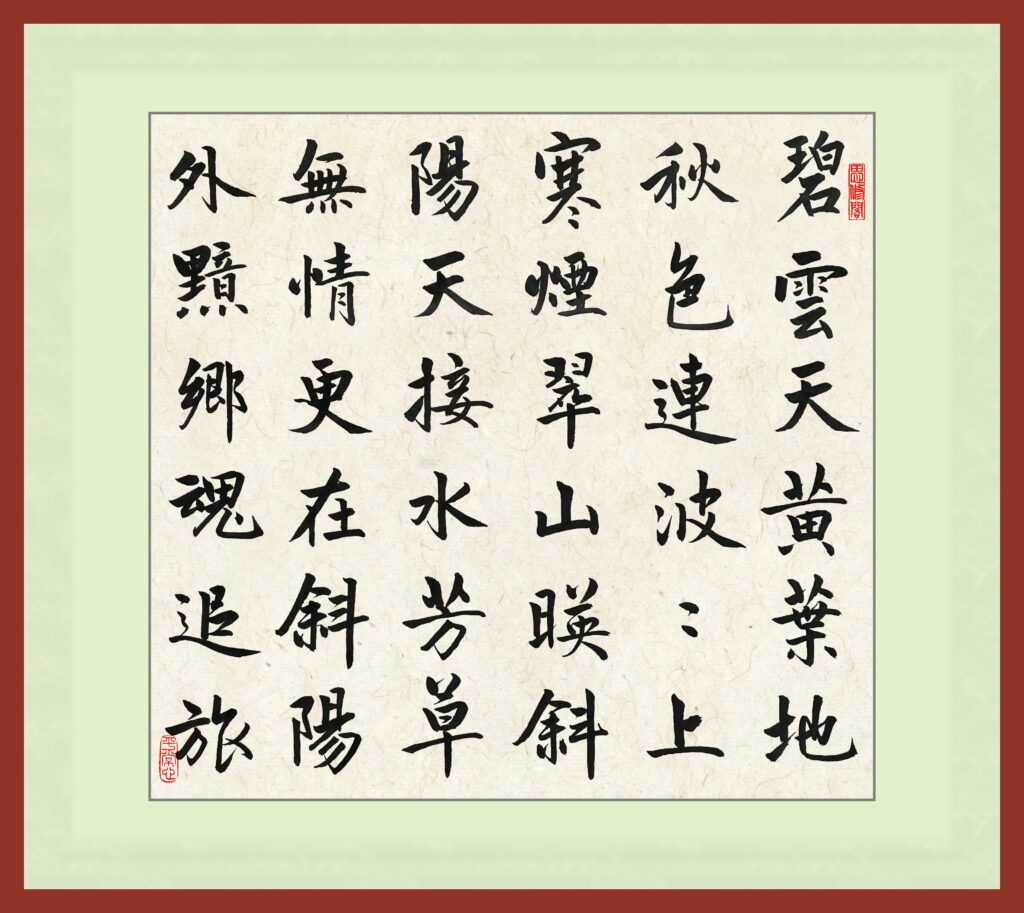 碧雲天黄葉地
秋色連波〻上
寒煙翠山暎斜
陽天接水芳草
無情更在斜陽
外黯鄉魂追旅
平常心